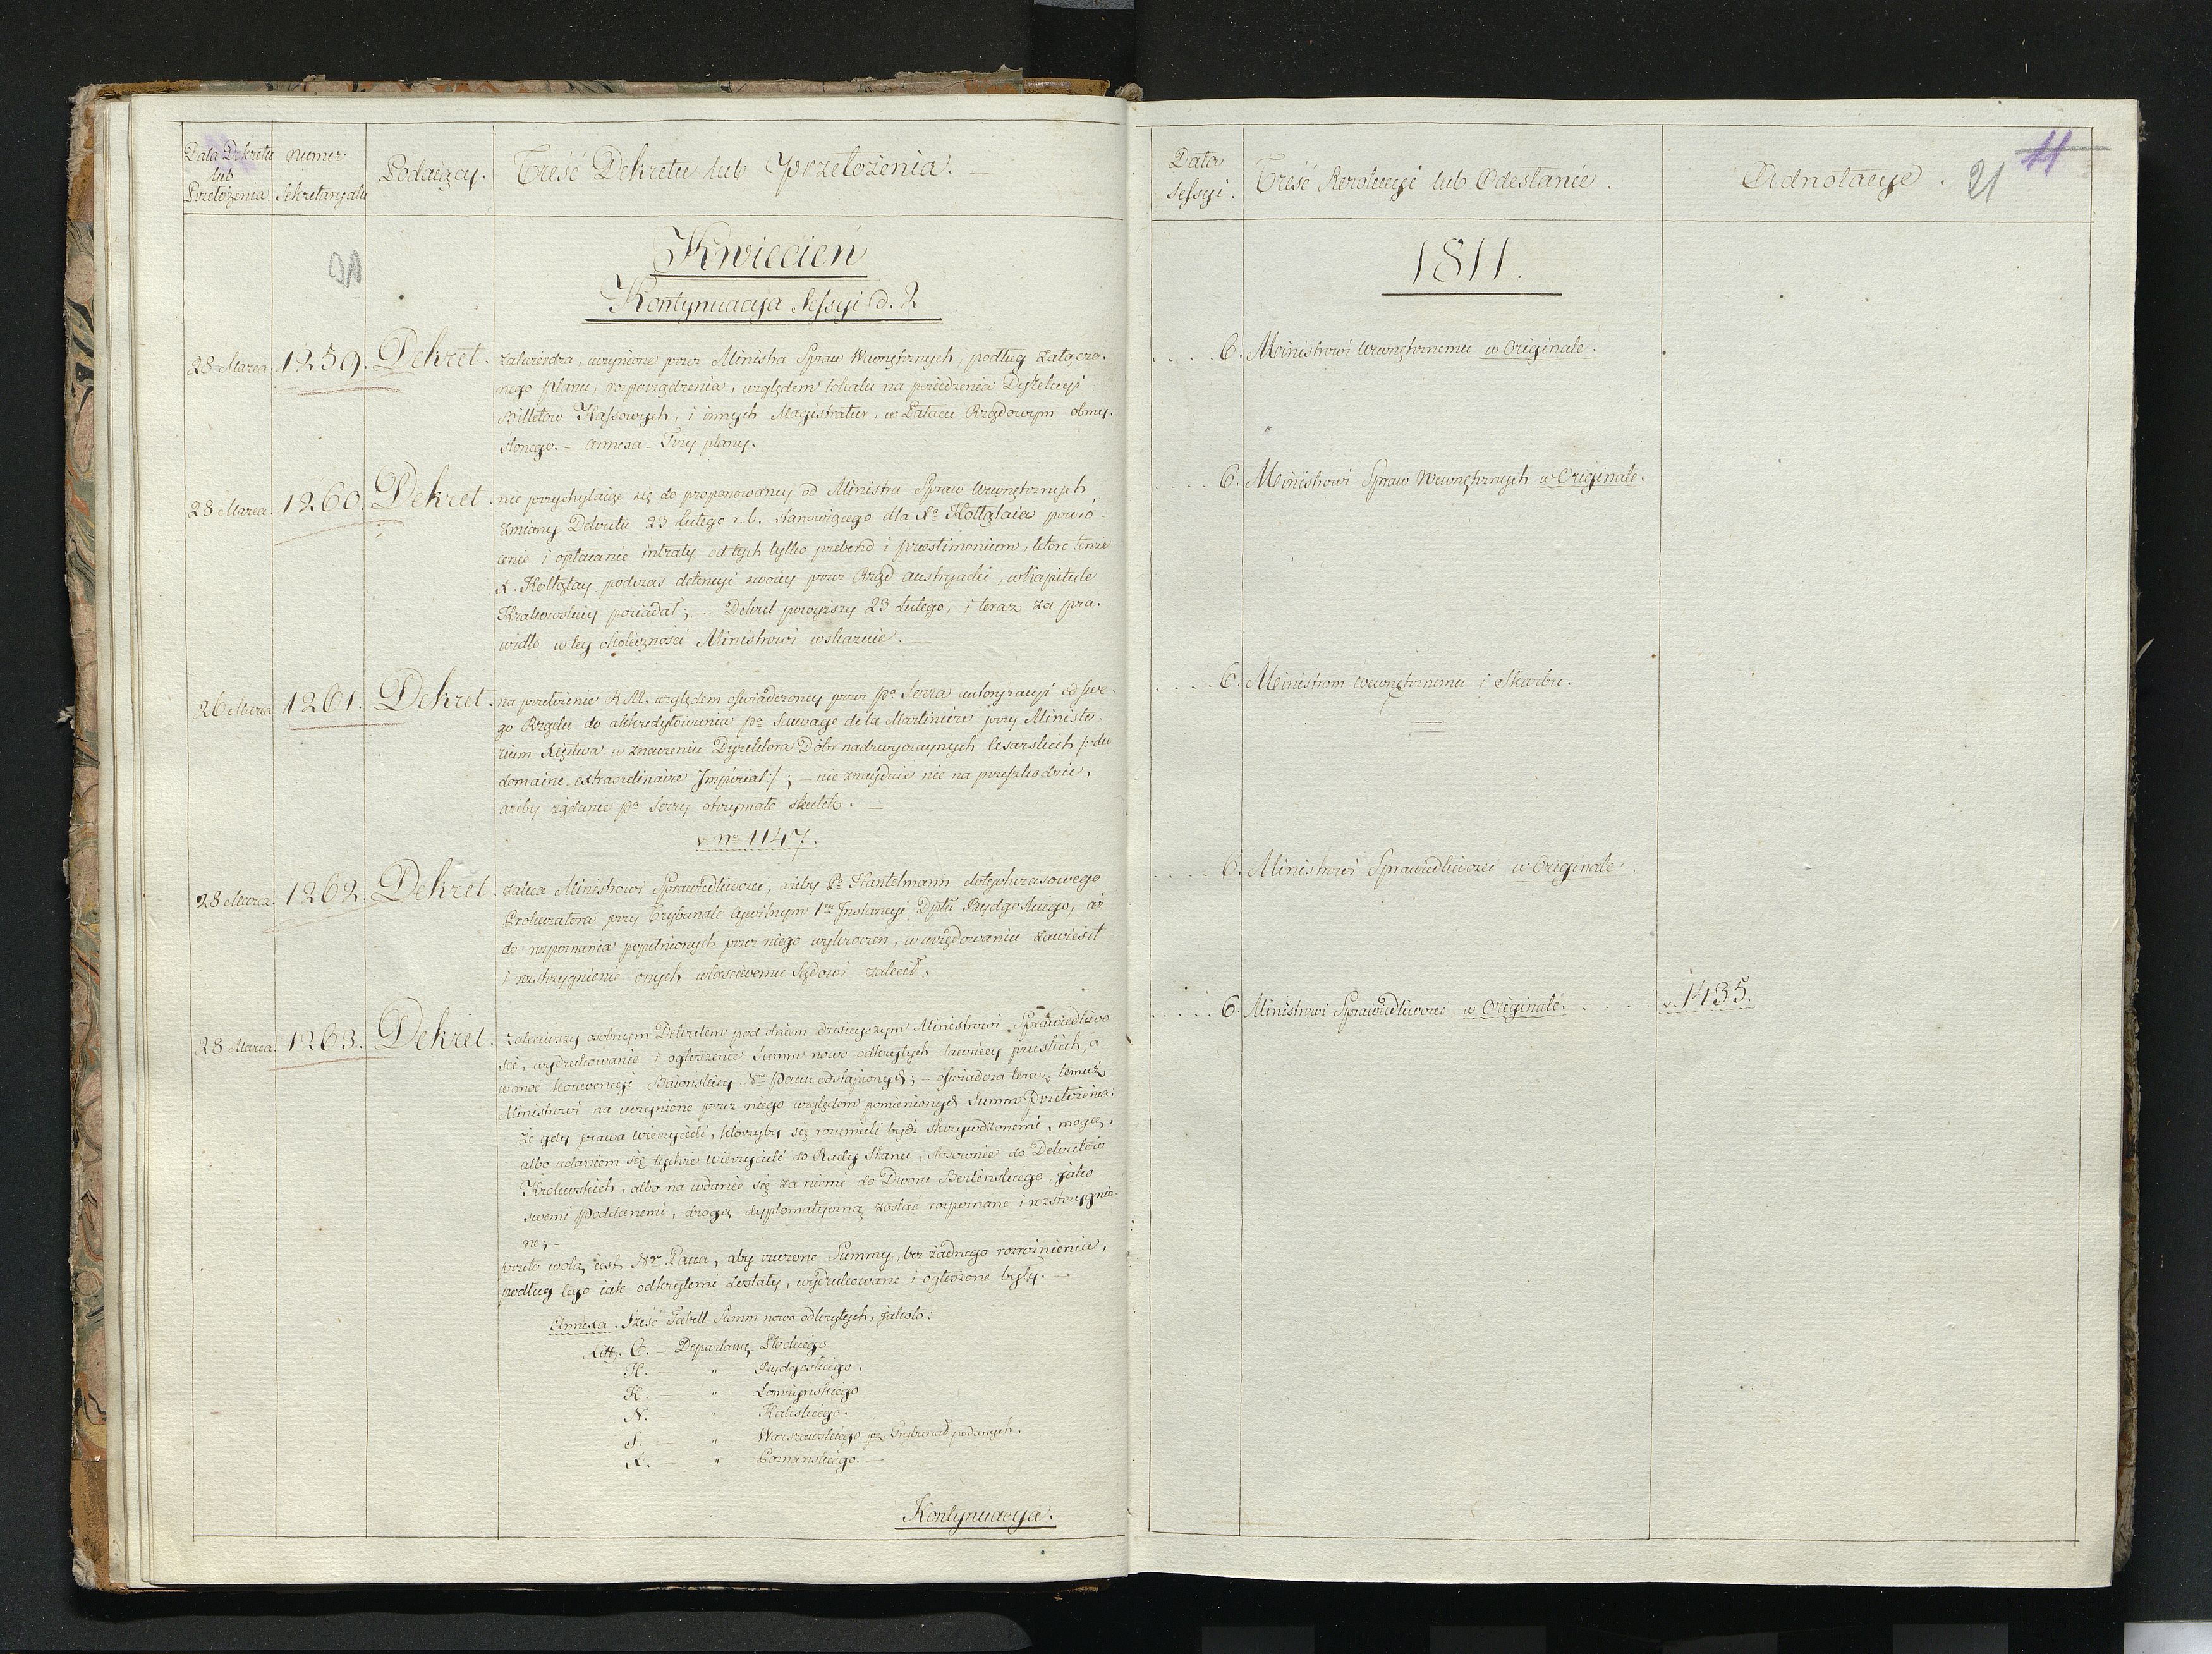 Data Dekretu
lub
Przełożenia.
Numer
Sekretaryatu
Podaiący.
Treść Dekretu lub Przełożenia. —
Kwiecień
Kontynuacya Sessyi d. 2
28 Marca. 1259. Dekret. zatwierdza, uczynione przez Ministra Spraw Wewnętrznych, podług załączo-
nego planu, rozporządzenia, względem lokalu na posiedzenia Dyrekcyi
Billetow Kassowych, i innych Magistratur, w Pałacu Rządowym obmy-
ślonego. — Annexa — Trzy plany.
28 Marca. 1260. Dekret. nie przychylaiąc się do proponowaney od Ministra Spraw Wewnętrznych,
zmiany Dekretu 23 Lutego r. b. stanowiącego dla Xa Kołłątaia powró-
cenie i opłacanie intraty od tych tylko prebend i praestimonium, które tenże
X. Kołłątay podczas detencyi swoiey przez Rząd Austryacki, w Kapitule
Krakowskiey posiadał; — Dekret powyższy 23 Lutego, i teraz za pra-
widło w tey okoliczności Ministrowi wskazuie. —
26 Marca 1261. Dekret. na przełożenie R. M. względem oświadczoney przez Pa Serra autoryzacyi od swe-
go Rządu do akkredytowania Pa Sauvage de la Martiniere przy Ministe-
rium Xięztwa w znaczeniu Dyrektora Dóbr nadzwyczaynych Cesarskich /: du
domaine extraordinaire Impérial :/ ; — nie znayduie nic na przeszkodzie,
ażeby żądanie Pa Serry otrzymało skutek. —
v. No 1147.
28 Marca. 1262. Dekret. zaleca Ministrowi Sprawiedliwości, ażeby Pa Hantelmann dotychczasowego
Prokuratora przy Trybunale Cywilnym 1ey Instancyi Dptu Bydgoskiego, aż
do rozpoznania popełnionych przez niego wykroczeń, w urzędowaniu zawiesił
i rozstrzygnienie onych właściwemu Sądowi zalecił.
28 Marca. 1263. Dekret. zaleciwszy osobnym Dekretem pod dniem dzisieyszym Ministrowi Sprawiedliwo-
ści, wydrukowanie i ogłoszenie Summ nowo odkrytych dawniey pruskich, a
w moc Konwencyi Baiońskiey Nmu Panu odstąpionych; — oświadcza teraz temuż
Ministrowi na uczynione przez niego względem pomienionych Summ Przełożenia:
że gdy prawa wierzycieli, którzyby się rozumieli bydź skrzywdzonemi, mogą,
albo udaniem się tychże wierzycieli do Rady Stanu, stosownie do Dekretów
Królewskich, albo na wdanie się za niemi do Dworu Berlińskiego, jako
swemi Poddanemi, drogą dyplomatyczną zostać rozpoznane i rozstrzygnio-
ne; —
przeto wolą iest No Pana, aby rzeczone Summy, bez żadnego rozróżnienia,
podług tego iak odkrytemi zostały, wydrukowane i ogłoszone były. —
Annexa. Sześć Tabell Summ nowo odkrytych, jakoto:
Litt. C. — Departamtu Płockiego
H. — " Bydgoskiego.
K. — " Łomżyńskiego
N. — " Kaliskiego.
S. — " Warszawskiego prz. Trybunał podanych.
X. — " Poznańskiego. —
Kontynuacya.
Data
Sessyi.
Treść Rezolucyi lub Odesłanie.
Adnotacye.
21
11
1811.
. . . . 6. Ministrowi Wewnętrznemu w Originale.
. . . . 6. Ministrowi Spraw Wewnętrznych w Originale.
. . . . 6. Ministrom Wewnętrznemu i Skarbu.
. . . . 6. Ministrowi Sprawiedliwości w Originale.
. . . . . 6. Ministrowi Sprawiedliwości w Originale. . . . . . v. 1435.